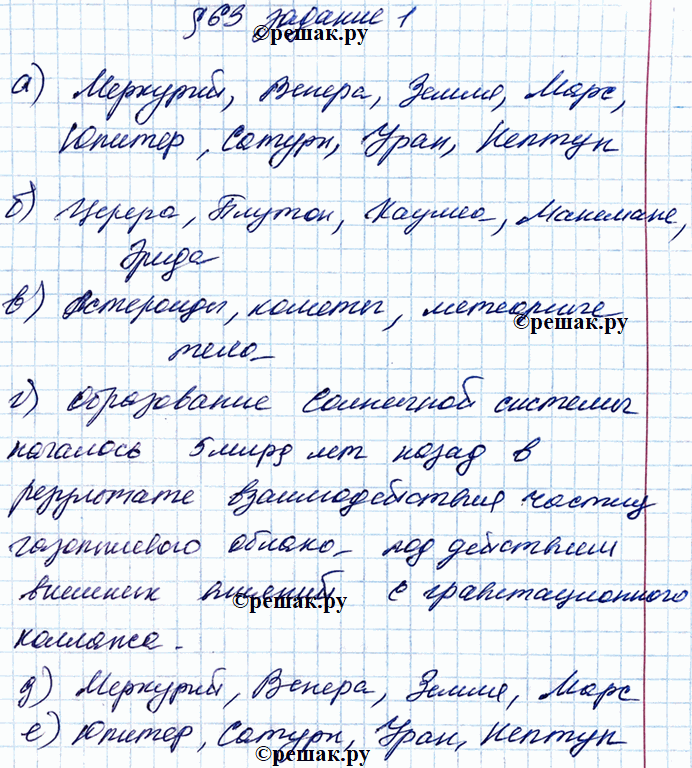 §63 задание 1
©решак.ру
а) Меркурий, Венера, Земля, Марс,
Юпитер, Сатурн, Уран, Нептун
б) Церера, Плутон, Хаумеа, Макемаке,
Эрида
в) Астероиды, кометы, метеорные
©решак.ру
тела
г) Образование Солнечной системы
началось 5 млрд лет назад в
результате взаимодействия частиц
газопылевого облака под действием
внешних с гравитационного
©решак.ру
коллапса.
д) Меркурий, Венера, Земля, Марс
е) Юпитер, Сатурн, Уран, Нептун
©решак.ру